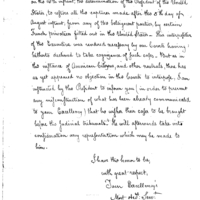 on the 10th instant, the determination of the President of the United
States, to restore all the captures made after the 5th day of
August instant, from any of the belligerent parties by certain
French privateers fitted out in the United States. This interposition
of the Executive was rendered necessary by our Courts having
hitherto declined to take cognizance of such cases. But as in
the instance of American Citizens, and other neutrals, there has
as yet appeared no objection in the Courts to interpose, I am
instructed by the President to inform you, in order to prevent
any misconstruction of what has been already communicated
to your Excellency, that he rather these cases to be brought
before the judicial tribunals. He will afterwards take into
consideration any representation which may be made to
him.
I have the honor to be,
with great respect,
Your Excellency's
Most obt. Serv.